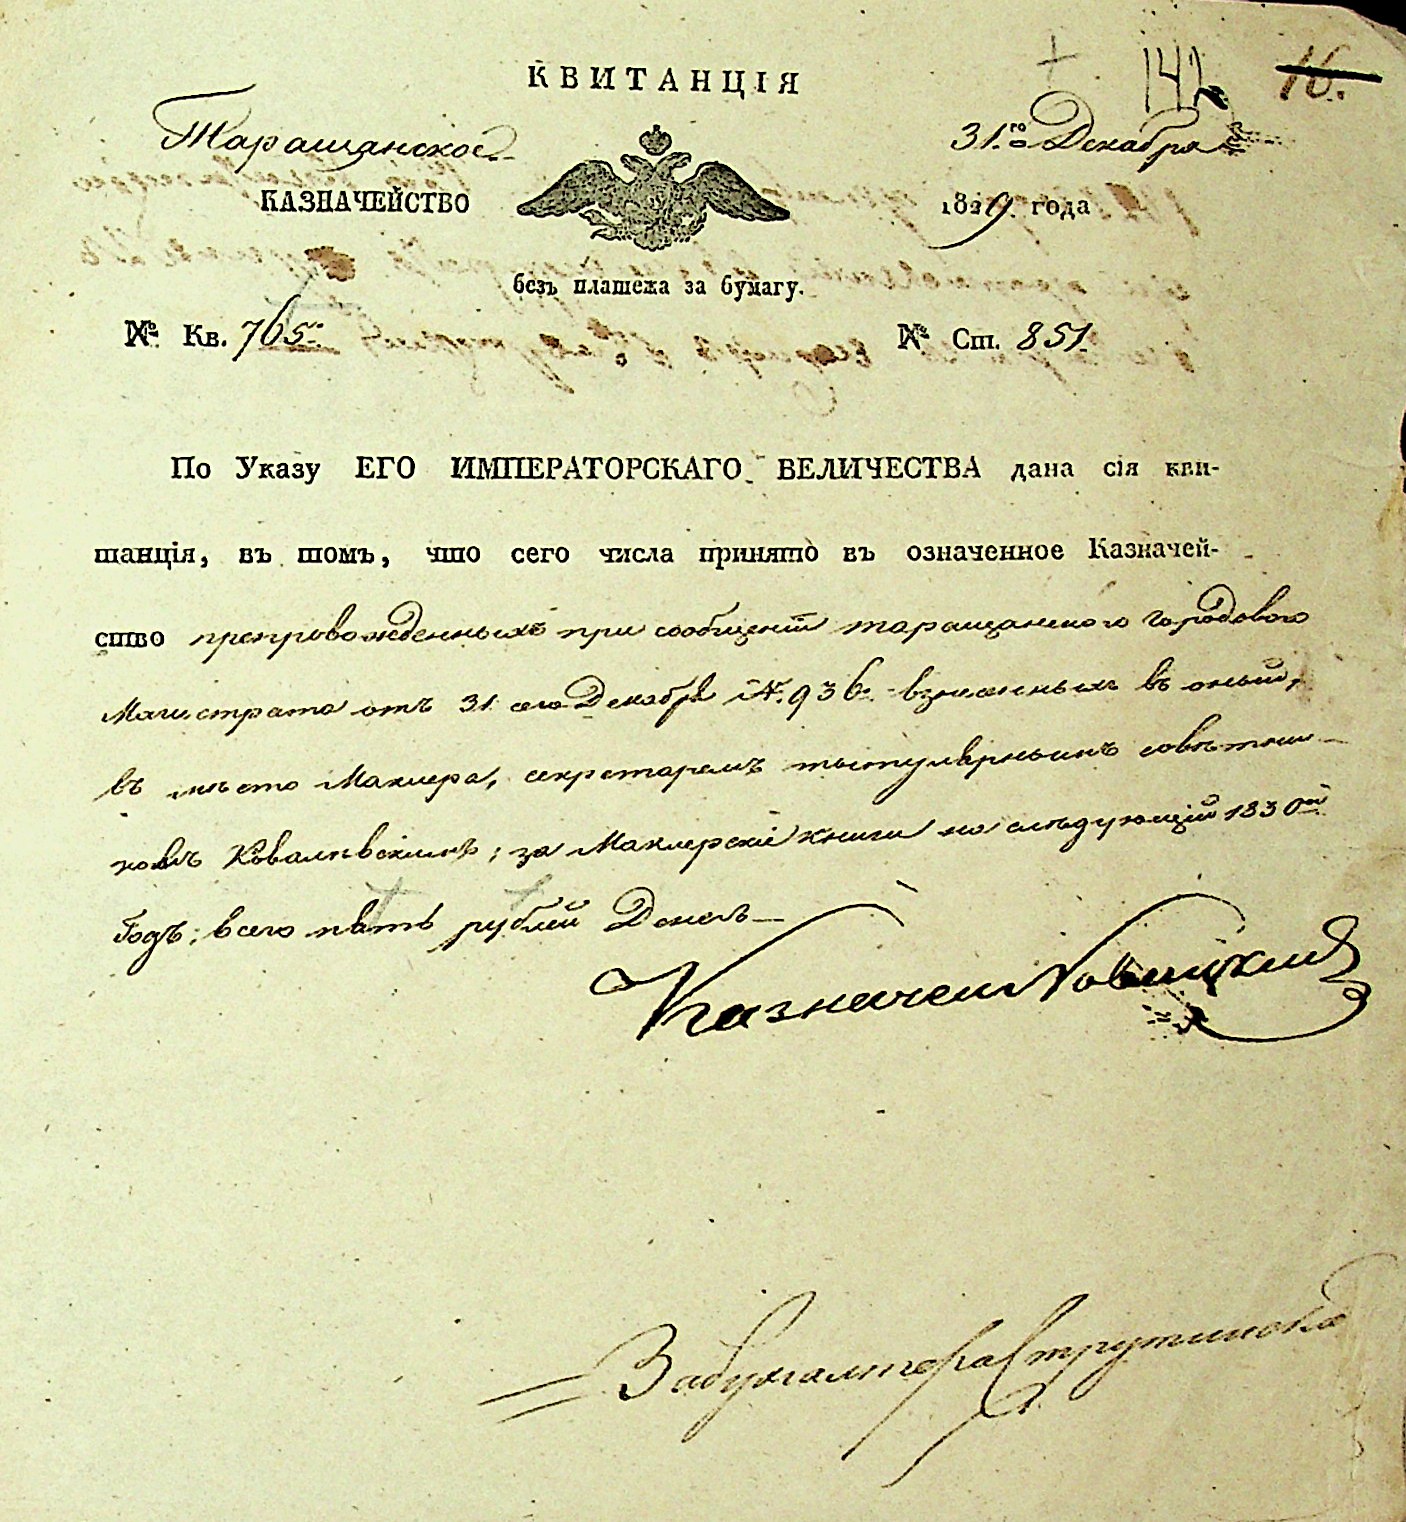 142 16.
КВИТАНЦІЯ
Таращанское
31.го Декабря
КАЗНАЧЕЙСТВО
1829. года
безъ платежа за бумагу.
№ Кв. 765.
№ Ст. 851.
По Указу ЕГО ИМПЕРАТОРСКАГО ВЕЛИЧЕСТВА дана сія кви-
танція, въ томъ, что сего числа принято въ означенное Казначей-
ство препровожденныхъ при сообщеніи таращанского городового
Магистрата отъ 31 сего Декабря №. 936. взнесенныхъ въ оный,
въ место Маклера, секретаремъ тытулярнымъ советни-
комъ Ковалевскимъ; за Маклерскіе книги на следующій 1830й
Годъ; всего пять рублей Денегъ
Казначей Новицкий
За бухгалтера Струтинский